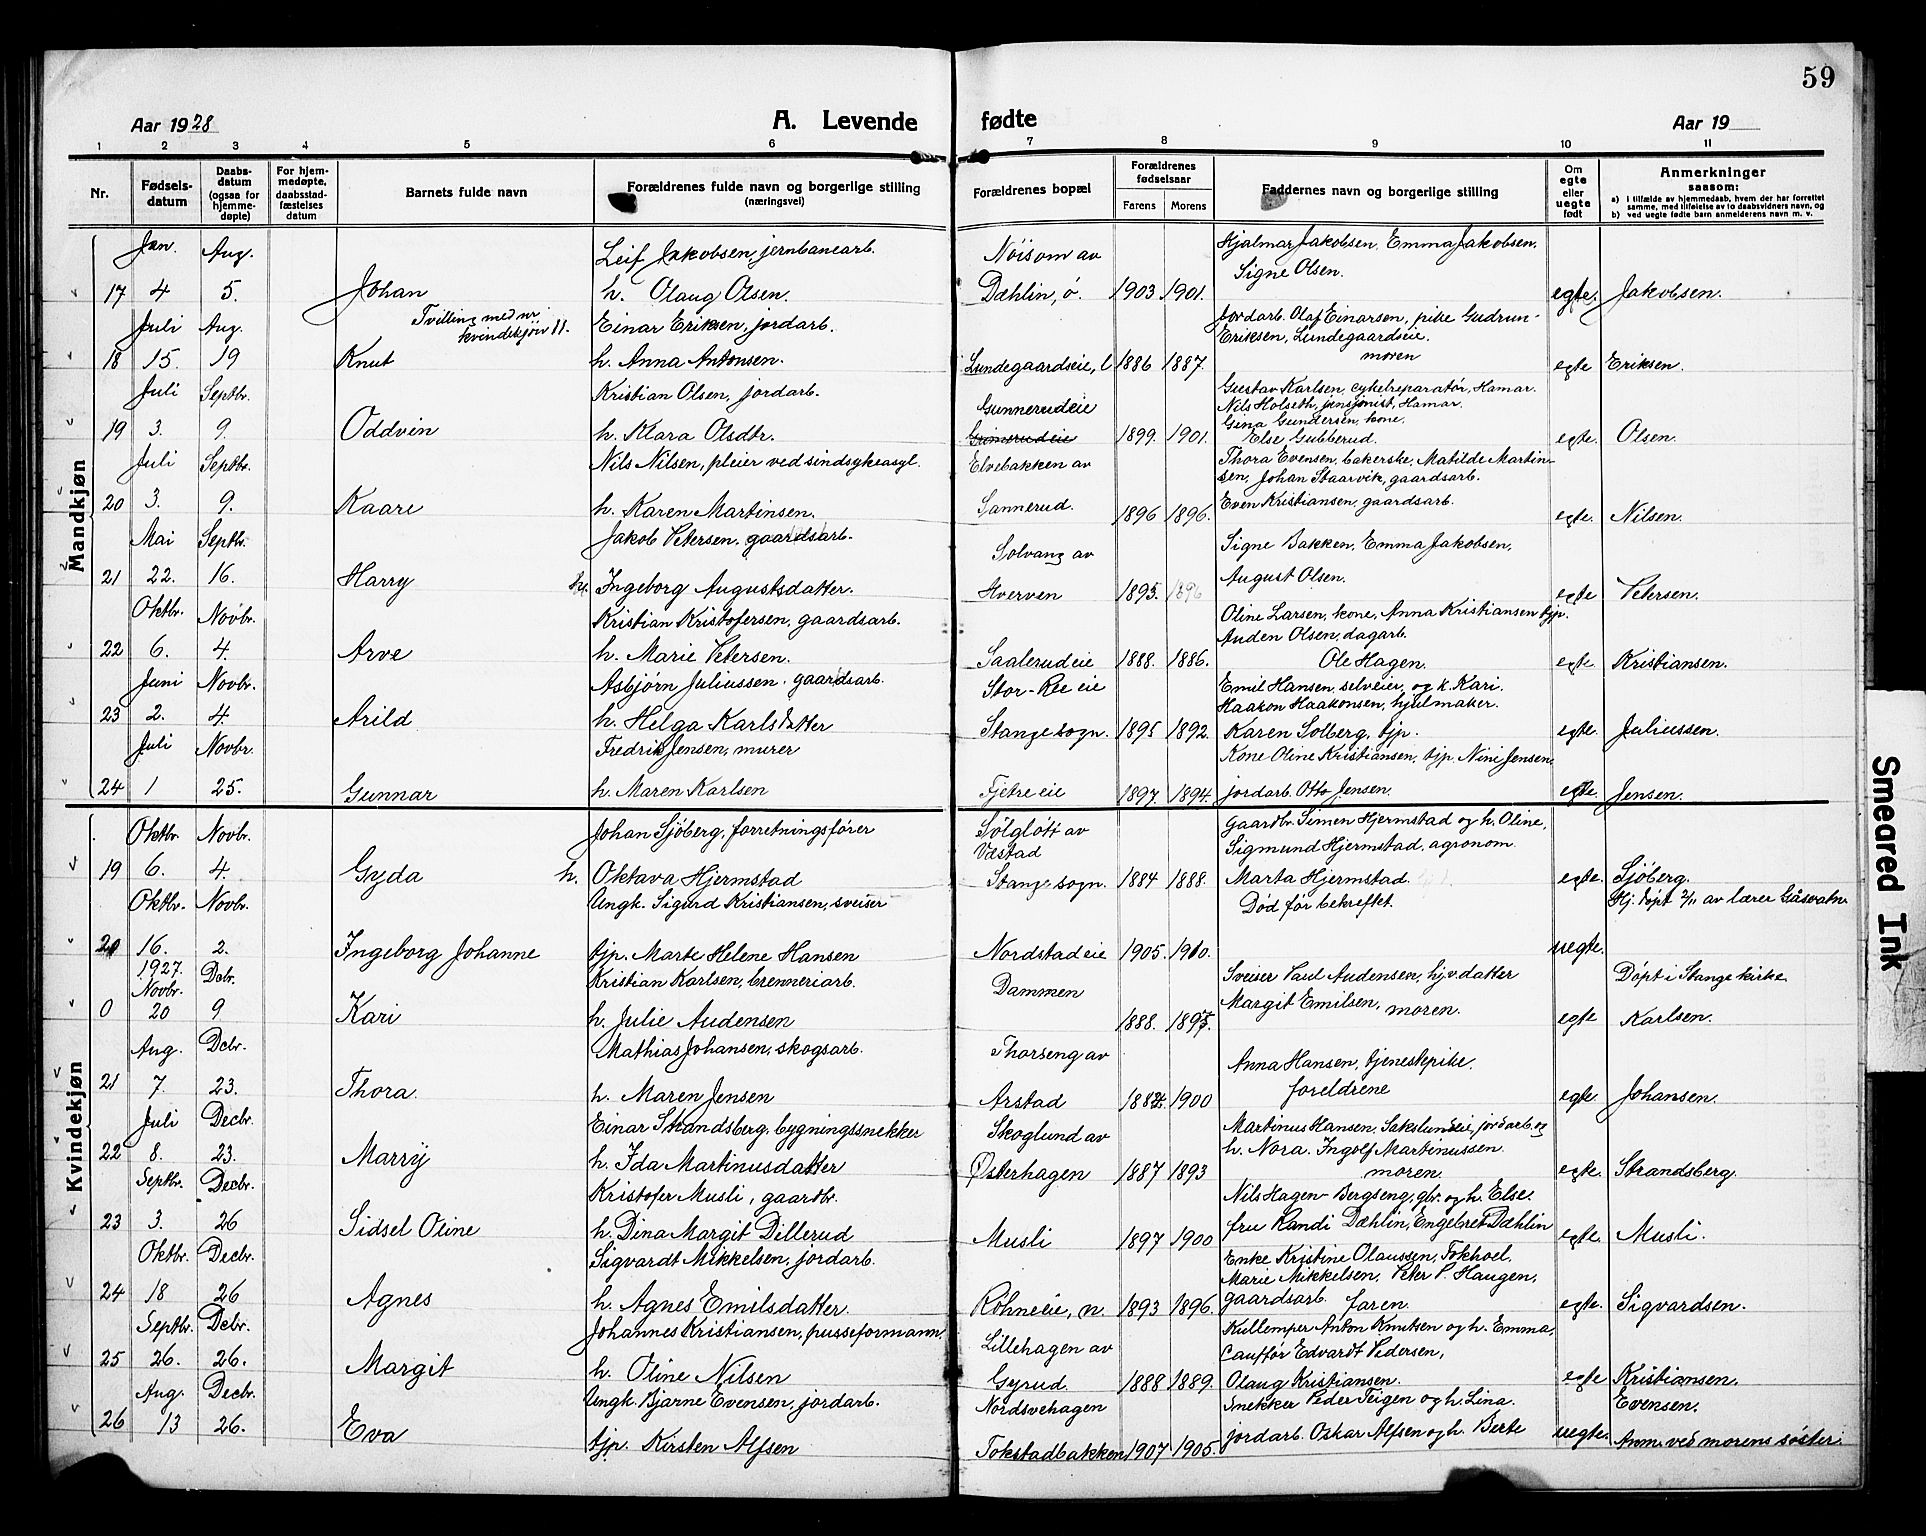 59
Aar 1928 A. Levende fødte Aar 19
1 2 3 4 5 6 7 8 9 10 11
Nr. Fødselsdatum Daabsdatum (ogsaa for hjemmedøpte) For hjemmedøpte, daabsstadfæstelses datum Barnets fulde navn Forældrenes fulde navn og borgerlige stilling (næringsvei) Forældrenes bopæl Forældrenes fødselsaar Farens Morens Faddernes navn og borgerlige stilling Om egte eller uegte født Anmerkninger saasom:
a) i tilfælde av hjemmedaab, hvem der har forrettet samme, med tilføielse av to daabsvidners navn, og
b) ved uegte fødte barn anmelderens navn m. v.
Mandkjøn
Jan. Aug. Leif Jakobsen, jernbanearb. Nöisom av Hjalmar Jakobsen, Emma Jakobsen,
Signe Olsen.
17 4 5. Johan h. Olaug Olsen. Dæhlin, ö. 1903 1901. egte. Jakobsen.
Juli Aug. Tvilling med nr. kvindekjön 11. Einar Eriksen, jordarb. Jordarb. Olaf Einarsen, pike Gudrun
Eriksen, Lundegaardseie.
moren
18 15. 19 Knut h. Anna Antonsen. Lundegaardseie, l 1886 1887. egte Eriksen.
Juli Septbr. Kristian Olsen, jordarb. Gunnerudeie Gustav Karlsen, cykelreparatør, Hamar.
Nils Holseth, pensjonist, Hamar.
Gina Gundersen, kone.
19 3. 9. Oddvin h. Klara Olsdtr. Gunnerudeie 1899. 1901. Else Gubberud. egte. Olsen.
Juli Septbr. Nils Nilsen, pleier ved sindsykeasyl. Elvebakken av Thora Evensen, bakerske, Matilde Martinsen, Johan Staarvik, gaardsarb.
20 3. 9. Kaare h. Karen Martinsen. Sannerud. 1896 1896. Even Kristiansen, gaardsarb. egte. Nilsen.
Mai Septbr. Jakob Petersen, gaardsarb. Solvang av Signe Bakken, Emma Jakobsen,
21 22. 16. Harry h. Ingeborg Augustsdatter. Hverven 1895. 1896 August Olsen. egte Petersen.
Oktbr. Novbr. Kristian Kristofersen, gaardsarb. Oline Larsen, kone, Anna Kristiansen tjp.
Auden Olsen, dagarb.
22 6. 4. Arve h. Marie Petersen. Saalerudeie 1888. 1886. Ole Hagen. egte Kristiansen.
Juni Novbr. Asbjørn Juliussen, gaardsarb. Stor-Ree eie Emil Hansen, selveier, og k. Kari.
Haakon Haakonsen, hjulmaker.
23 2. 4. Arild h. Helga Karlsdatter Stange sogn. 1895 1892. Karen Solberg, tjp. egte. Juliussen.
Juli Novbr. Fredrik Jensen, murer Kone Oline Kristiansen, tjp. Nini Jensen,
24 1 25. Gunnar h. Maren Karlsen Fjetre eie 1897. 1894. jordarb. Otto Jensen. egte. Jensen.
Kvindekjøn
Oktbr. Novbr. Johan Sjöberg, forretningsfører Sölglött av Gaardbr. Simen Hjermstad og h. Oline,
Vestad Sigmund Hjermstad, agronom
19 6. 4. Gyda h. Oktava Hjermstad Stange sogn. 1884 1888. Marta Hjermstad. egte. Sjöberg.
Oktbr. Novbr. Ungk. Sigurd Kristiansen, sveiser Død før bekreftet. Hj. døpt 2/11 av lærer Gåsvatn
20 16. 2. Ingeborg Johanne tjp. Marte Helene Hansen Nordstadeie 1905. 1910. uegte.
1927 Novbr. Debr. Kristian Karlsen, brenneriarb. Dammen Sveiser Paul Audensen, hjv. datter Døpt i Stange kirke
0 20 9 Kari h. Julie Audensen 1888. 1895. Margit Emilsen, moren. egte Karlsen.
Aug. Debr. Mathias Johansen, skogsarb. Thorseng av Anna Hansen, tjenestepike.
21 7. 23. Thora. h. Maren Jensen Arstad 1884. 1900 foreldrene egte Johansen.
Juli Decbr. Einar Strandsberg, bygningssnekker Skoglund av Martinus Hansen, Sakslundeie, jordarb. og
22 8. 23. Marry h. Ida Martinusdatter Østerhagen 1887 1893 h. Nora. Ingolf Martinussen
moren. egte. Strandsberg.
Septbr. Decbr. Kristofer Musli, gaardbr. Nils Hagen-Bergseng, gbr. og h. Else.
23 3. 26 Sidsel Oline h. Dina Margit Dillerud Musli 1897 1900 fru Randi Dæhlin, Engebret Dæhlin egte. Musli.
Oktbr. Decbr. Sigvardt Mikkelsen, jordarb. Enke Kristine Olaussen, Tokhoel.
Marie Mikkelsen, Peter P. Haugen,
24 18 26 Agnes h. Agnes Emilsdatter. Röhneeie, n. 1893 1896. gaardsarb. faren. egte. Sigvardsen.
Septbr. Debr. Johannes Kristiansen, pusseformann. Lillehagen av Kullemper Anton Knutsen og h. Emma,
Cauffør Edvardt Pedersen,
25 26. 26. Margit h. Oline Nilsen Gyrud. 1888 1889. Olaug Kristiansen. egte Kristiansen.
Aug. Decbr. Ungk. Bjarne Evensen, jordarb. Nordsvehagen Snekker Peder Teigen og h. Lina. Evensen.
26 13 26. Eva tjp. Kirsten Alfsen Tokstadbakken 1907 1905. jordarb. Oskar Alfsen og h. Berte uegte. Anm. ved morens söster.
Smeared Ink